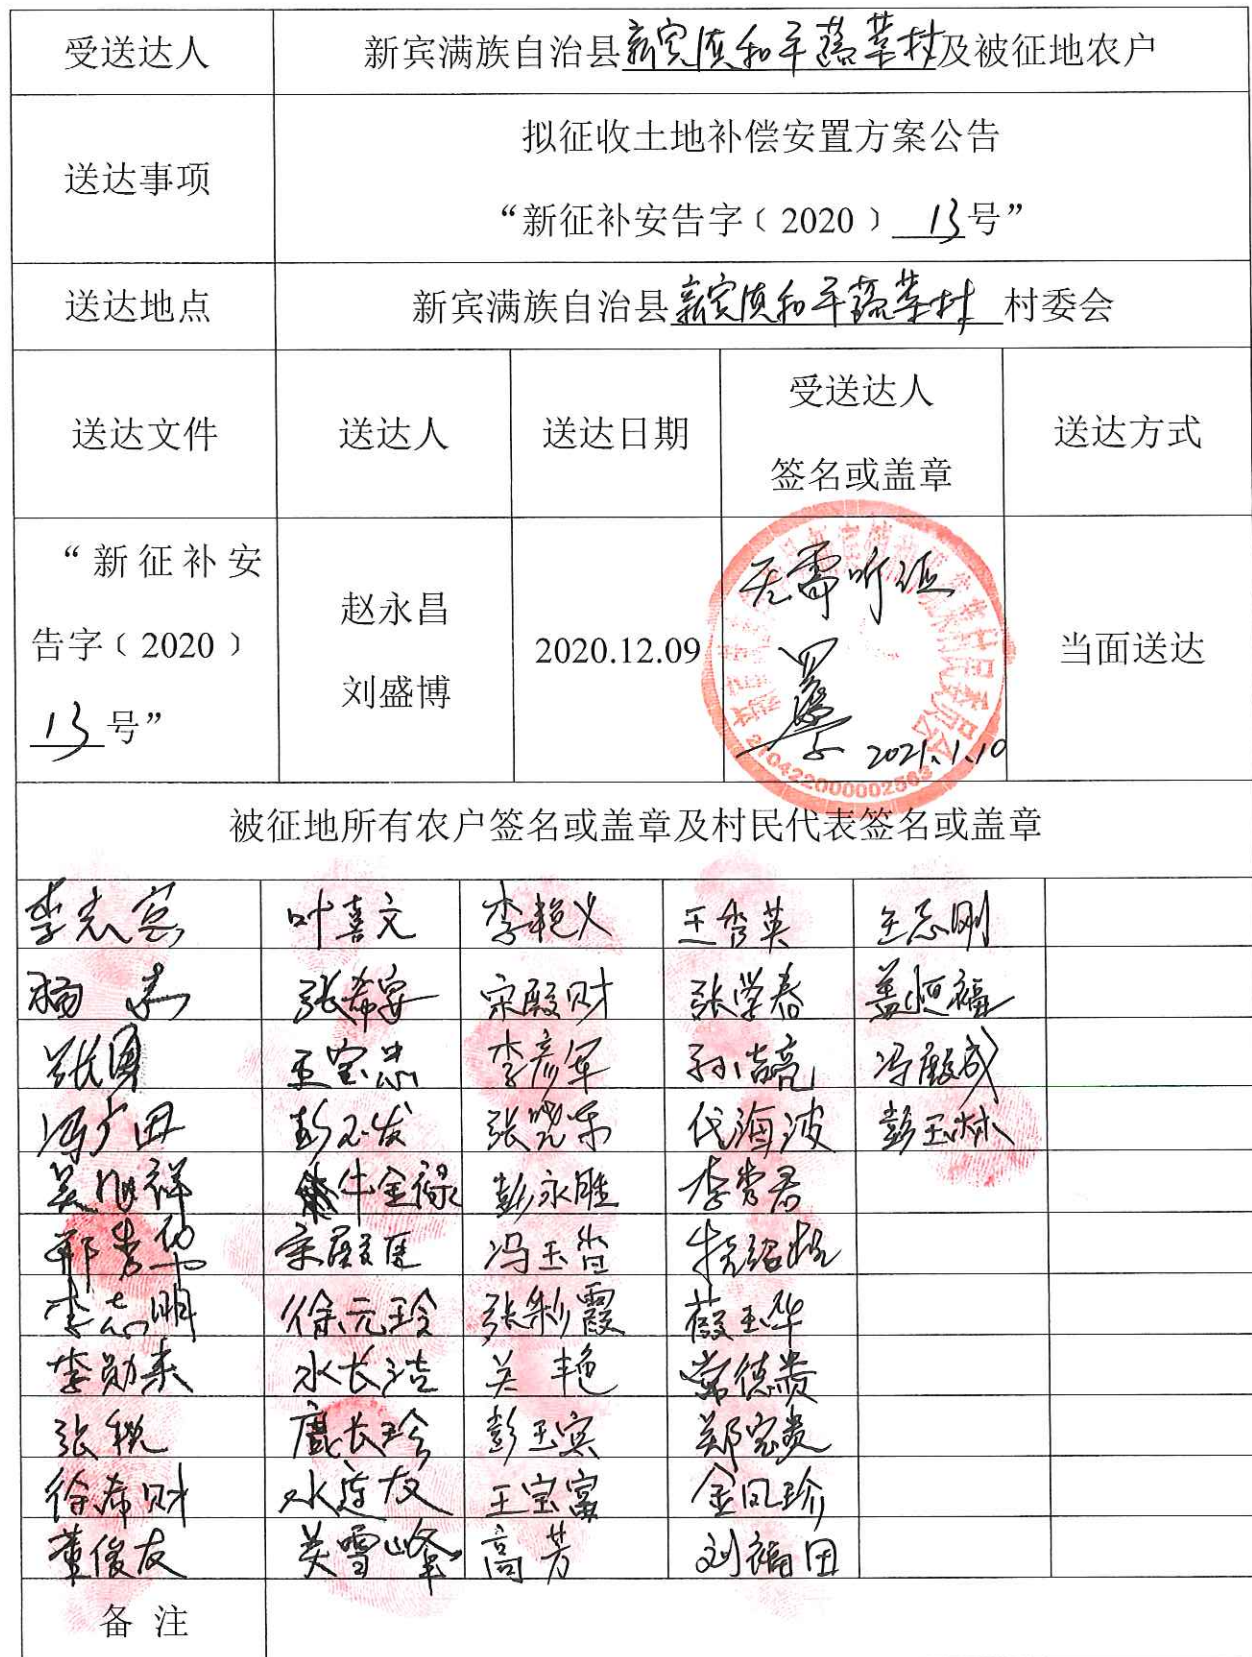 受送达人 新宾满族自治县新宾镇和平蔬菜村及被征地农户
拟征收土地补偿安置方案公告
送达事项
“新征补安告字﹝2020﹞13号”
送达地点 新宾满族自治县新宾镇和平蔬菜村 村委会
送达文件 送达人 送达日期 受送达人 签名或盖章 送达方式
“新征补安
告字﹝2020﹞
13号”
赵永昌
刘盛博
2020.12.09
无需听证
2021.1.10
2104220000002563
当面送达
被征地所有农户签名或盖章及村民代表签名或盖章
李志宾 叶喜文 李艳义 王秀英 王志刚
杨志 张希安 宋殿财 张学春 盖恒福
张勇 王宝忠 李彦军 孙占亮 冯殿成
冯广田 张晓东 代海波 彭玉林
吴旭祥 牛金禄 彭永胜 李常君
宋殿臣
李志明 徐元玲 张彩霞
李勋来 水长浩 关艳 常德贵
张锐 鹿长玲 彭玉宾 郑家贵
徐希财 水连友 王宝富 金凤珍
董俊友 关雪峰 高芳 刘福田
备 注